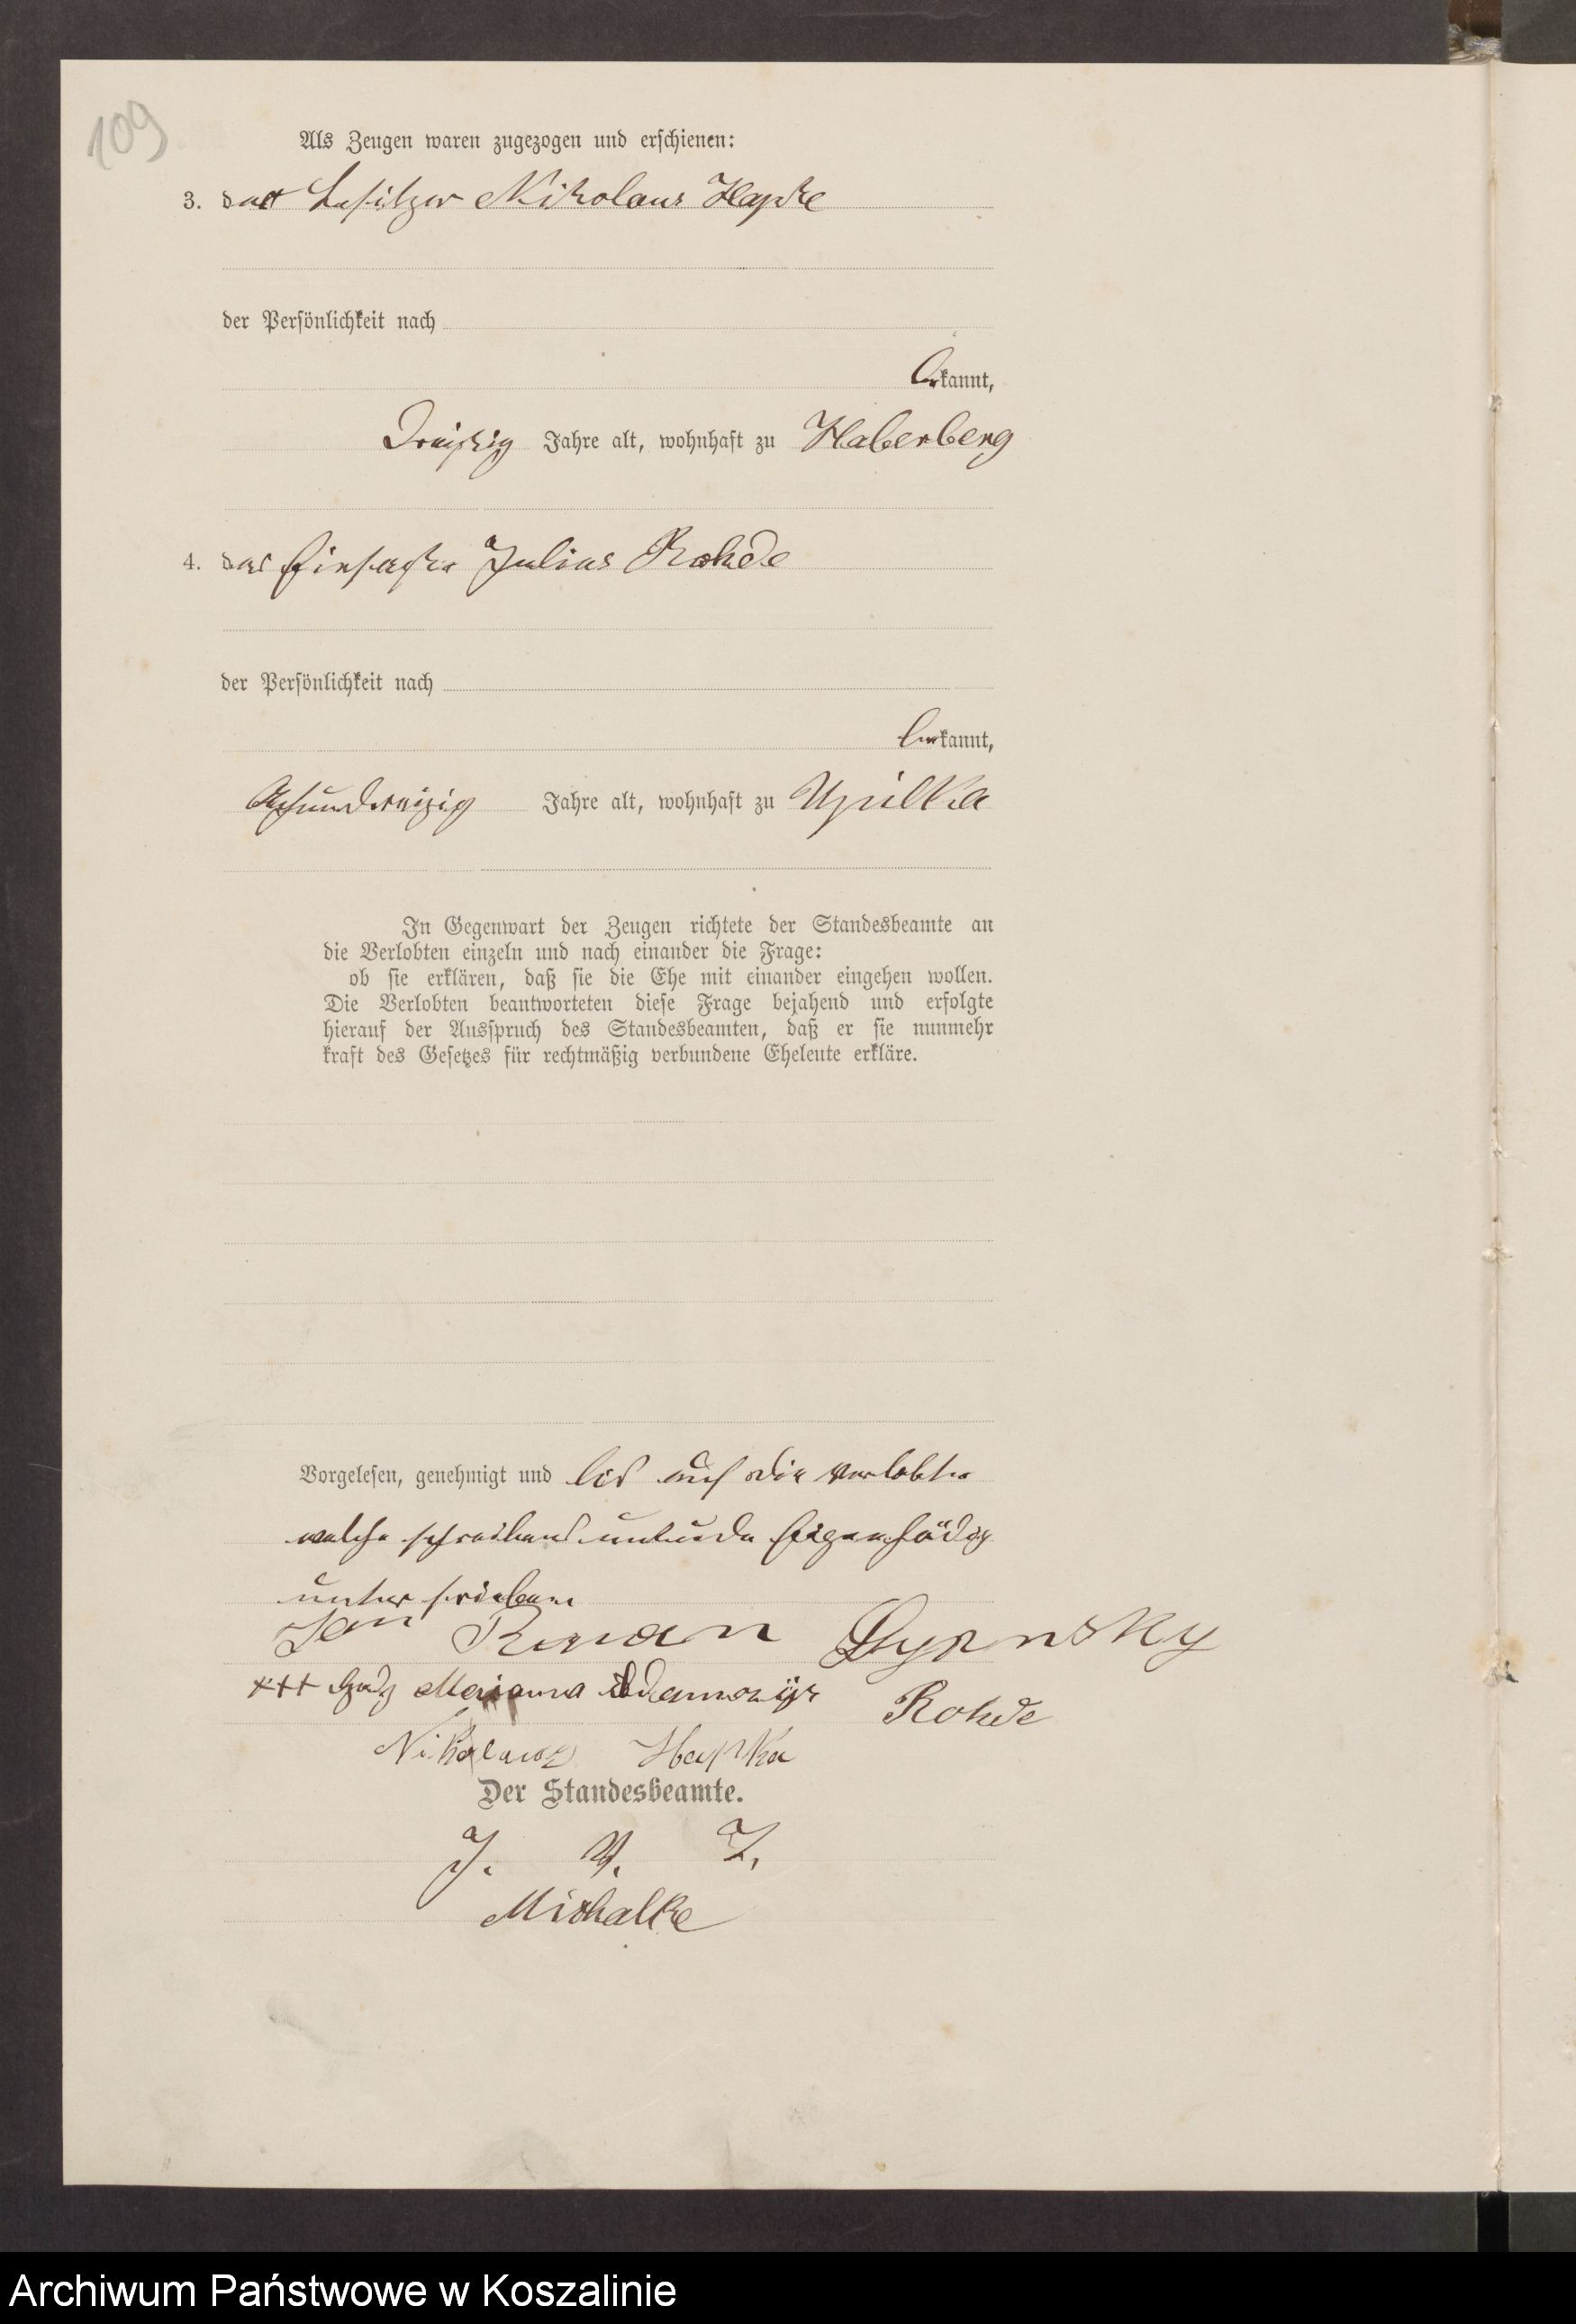 109
Als Zeugen waren zugezogen und erschienen:
3. der Besitzer Nikolaus Hapke
der Persönlichkeit nach
bekannt,
Dreißig Jahre alt, wohnhaft zu Haberberg
4. der Einsasse Julius Rohde
der Persönlichkeit nach
bekannt,
Achtunddreißig Jahre alt, wohnhaft zu Upilka
In Gegenwart der Zeugen richtete der Standesbeamte an
die Verlobten einzeln und nach einander die Frage:
ob sie erklären, daß sie die Ehe mit einander eingehen wollen.
Die Verlobten beantworteten diese Frage bejahend und erfolgte
hierauf der Ausspruch des Standesbeamten, daß er sie nunmehr
kraft des Gesetzes für rechtmäßig verbundene Eheleute erkläre.
Vorgelesen, genehmigt und bis auf die Verlobte
welche schreibens unkunde Eigenhädig
unterschrieben
Jan
+++ Marianna
Rohde
Nikolaus Hapka
Der Standesbeamte.
J. V.
Mischalke
Archiwum Państwowe w Koszalinie